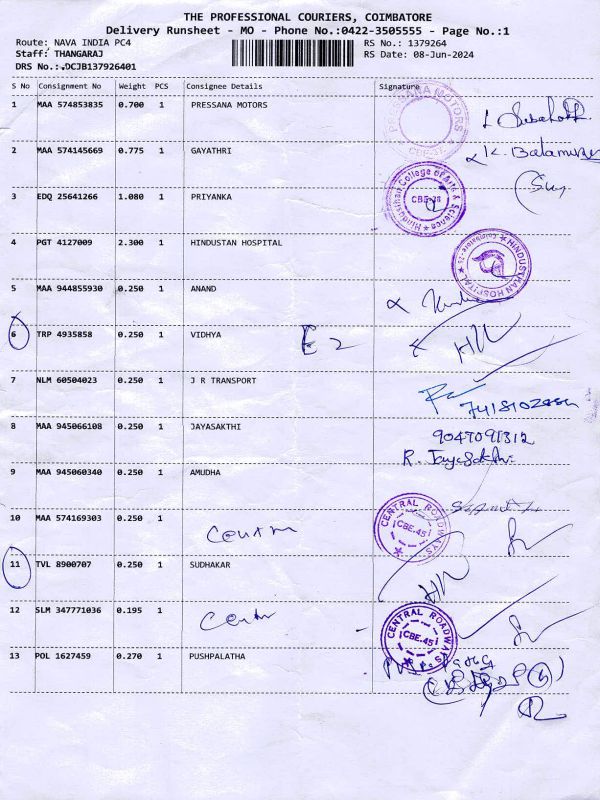 THE PROFESSIONAL COURIERS, COIMBATORE
Delivery Runsheet - MO - Phone No.:0422-3505555 - Page No.:1
Route: NAVA INDIA PC4 RS No.: 1379264
Staff: THANGARAJ RS Date: 08-Jun-2024
DRS No.: DCJB137926401
S No Consignment No Weight PCS Consignee Details Signature
1 MAA 574853835 0.700 1 PRESSANA MOTORS
PRESSANA MOTORS
2 MAA 574145669 0.775 1 GAYATHRI K. Balamurugan
3 EDQ 25641266 1.080 1 PRIYANKA
Hindusthan College of Arts & Science CBE-28
4 PGT 4127009 2.300 1 HINDUSTAN HOSPITAL
HINDUSTHAN HOSPITAL
5 MAA 944855930 0.250 1 ANAND
6 TRP 4935858 0.250 1 VIDHYA
7 NLM 60504023 0.250 1 J R TRANSPORT
8 MAA 945066108 0.250 1 JAYASAKTHI 9047091312
R. Jayasakthi
9 MAA 945060340 0.250 1 AMUDHA
10 MAA 574169303 0.250 1
CENTRAL ROADWAYS CBE.45
11 TVL 8900707 0.250 1 SUDHAKAR
12 SLM 347771036 0.195 1
CENTRAL ROADWAYS CBE.45
13 POL 1627459 0.270 1 PUSHPALATHA